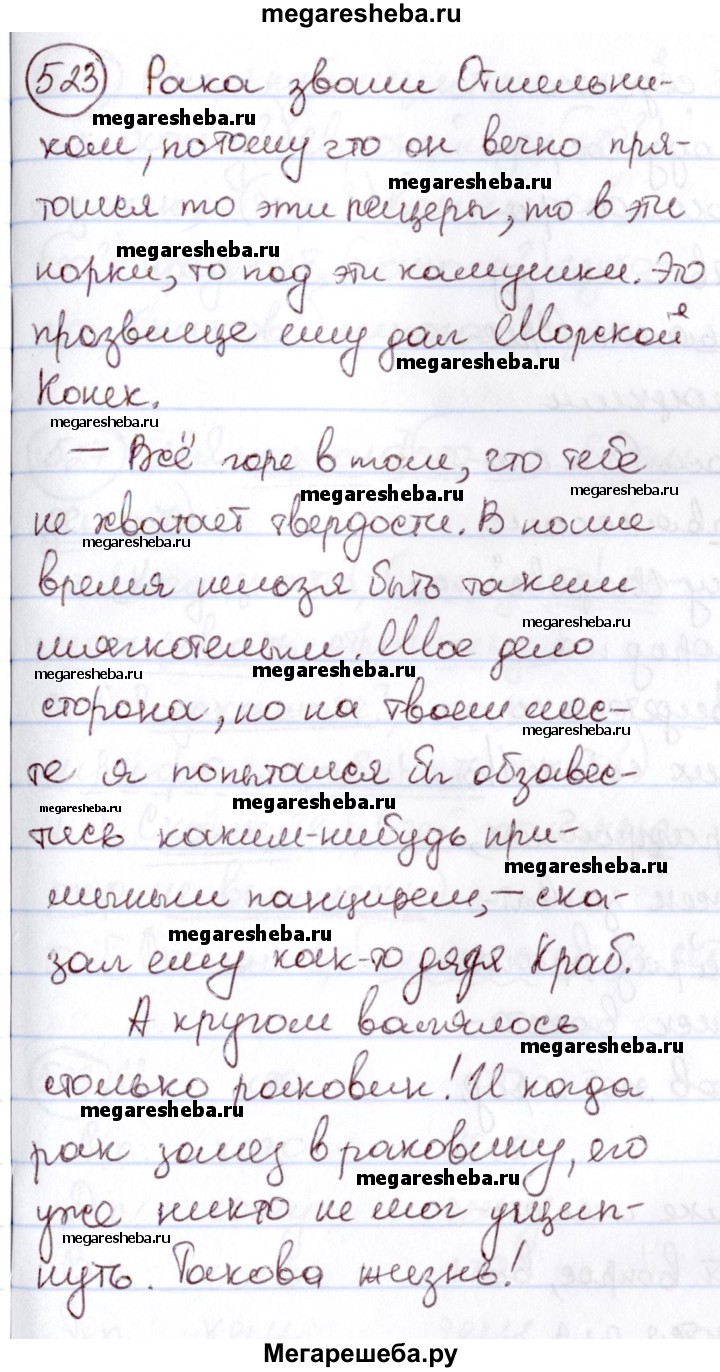 megaresheba.ru
523 Рака звали Отшельни-
megaresheba.ru
ком, потому что он вечно пря-
megaresheba.ru
тался то эти пещеры, то в эти
megaresheba.ru
норки, то под эти камушки. Это
прозвище ему дал Морской
megaresheba.ru
Конек.
megaresheba.ru
— Всё горе в том, что тебе
megaresheba.ru megaresheba.ru
не хватает твердости. В наше
megaresheba.ru
время нельзя быть таким
megaresheba.ru
мягкотелым. Мое дело
megaresheba.ru megaresheba.ru
сторона, но на твоем мес-
megaresheba.ru
те я попытался бы обзавес-
megaresheba.ru megaresheba.ru
тись каким-нибудь при-
megaresheba.ru
личным панцирем, — ска-
megaresheba.ru
зал ему как-то дядя Краб.
А кругом валялось
megaresheba.ru
столько раковин! И когда
megaresheba.ru
рак залез в раковину, его
megaresheba.ru
уже никто не мог ущип-
megaresheba.ru
нуть. Такова жизнь!
Мегарешеба.ру